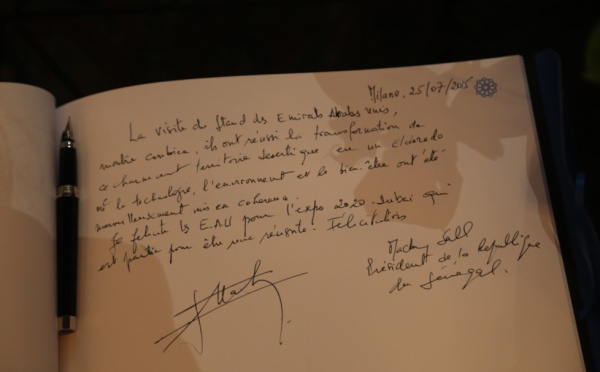 Milano, 25/07/2015
La visite du Stand des Emirats Arabes Unis,
montre combien, ils ont réussi la transformation de
ce charmant territoire desertique en un eldorado
où la technologie, l'environment et le bien-être ont été
merveilleusement mis en coherence.
Je felicite les E.A.U pour l'expo 2020 Dubai qui
est partie pour être une réussite. Félicitations
Macky Sall
Président de la République
du Sénégal.